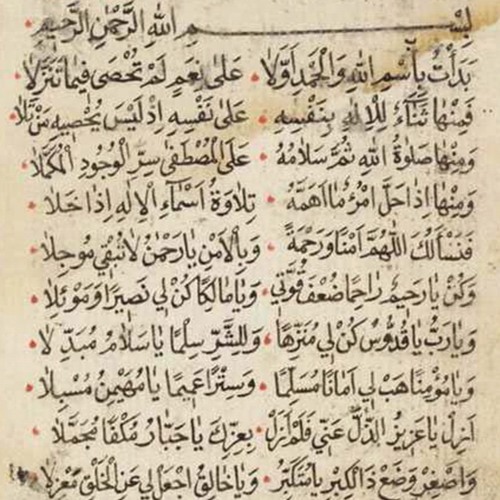 بِسْمِ اللهِ الرَّحْمٰنِ الرَّحِيمِ
بَدَأْتُ بِاسْمِ اللهِ وَالْحَمْدِ اَوَّلَا عَلَى نِعَمٍ لَمْ تُحْصَى فِيمَا تَنَزَّلَا
فَمِنْهَا ثَنَاءٌ لِلْإِلٰهِ بِنَفْسِهِ عَلَى نَفْسِهِ اِذْ لَيْسَ يُحْصِيهِ مَنْ تَلَا
وَمِنْهَا صَلٰوةُ اللهِ ثُمَّ سَلَامُهُ عَلَى الْمُصْطَفٰى سِرِّ الْوُجُودِ الْمُكَمَّلَا
وَمِنْهَا اِذَا حَلَّ امْرُءٌ مَا اَهَمَّهُ تِلَاوَةُ اَسْمَاءِ الْاِلٰهِ اِذَا خَلَا
فَنَسْأَلُكَ اللّٰهُمَّ اَمْنًا وَرَحْمَةً وَبِالْاَمْنِ يَا رَحْمٰنُ لَا تُبْقِي مُوجِلَا
وَكُنْ يَا رَحِيمُ رَاحِمًا ضُعْفَ قُوَّتِي وَيَا مَالِكًا كُنْ لِي نَصِيرًا وَمَوْئِلَا
وَيَا رَبُّ يَا قُدُّوسُ كُنْ لِي مُنَزِّهًا وَلِلشَّرِّ سِلْمًا يَا سَلَامُ مُبَدِّلَا
وَيَا مُؤْمِنًا هَبْ لِي اَمَانًا مُسَلَّمًا وَسِتْرًا عَمِيمًا يَا مُهَيْمِنُ مُسْبَلَا
اَزِلْ يَا عَزِيزُ الذُّلَّ عَنِّي فَلَمْ اَزَلْ بِعِزِّكَ يَا جَبَّارُ مُكَفًّا مُجَمَّلَا
وَاصْغِرْ وَضَعْ ذَا الْكِبْرِ يَا مُتَكَبِّرُ وَيَا خَالِقُ اجْعَلْ لِي عَنِ الْخَلْقِ مَعْزِلَا